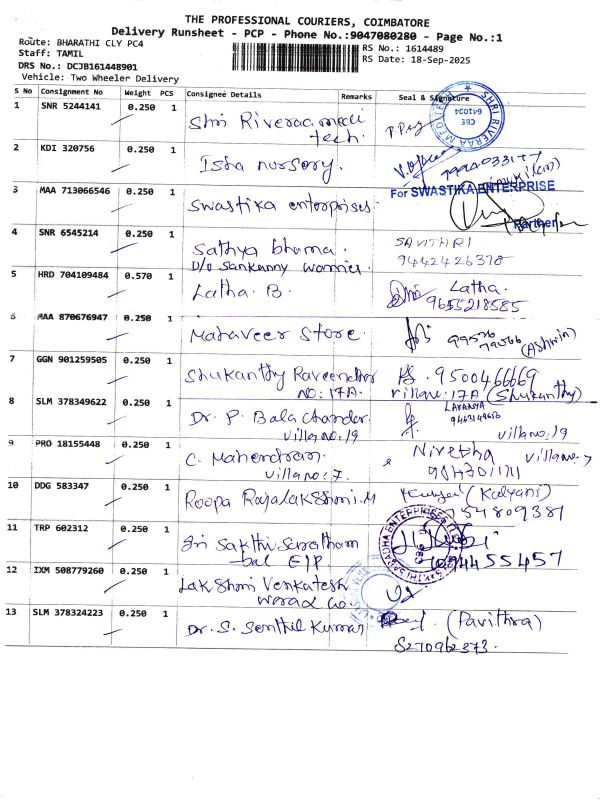 THE PROFESSIONAL COURIERS, COIMBATORE
Delivery Runsheet - PCP - Phone No.:9047080280 - Page No.:1
Route: BHARATHI CLY PC4
RS No.: 1614489
Staff: TAMIL
RS Date: 18-Sep-2025
DRS No.: DCJB161448901
Vehicle: Two Wheeler Delivery
S No Consignment No Weight PCS Consignee Details Remarks Seal & Signature
1 SNR 5244141 0.250 1 Shri Riveraa medi
tech.
SHRI RIVERAA MEDITECH
CBE
641004
2 KDI 320756 0.250 1 Isha nursory.
For SWASTIKA ENTERPRISE
3 MAA 713066546 0.250 1 Swastika enterprises
Partner
4 SNR 6545214 0.250 1 Sathya bhama. SAVITHRI
D/o Sankunny warrier 9442426378
5 HRD 704109484 0.570 1 Latha. B. Latha.
9655218585
6 MAA 870676947 0.250 1 Mahaveer Store. (Ashwin)
7 GGN 901259505 0.250 1 Shukanthy Raveendror 9500466669
NO: 17A. villano: 17A (Shukanthy)
8 SLM 378349622 0.250 1 Dr. P. Bala Chander. LAVANYA
villa no: 19 villa no: 19
9 PRO 18155448 0.250 1 C. Mahendran. Nivetha villa no: 7
villa no: 7.
10 DDG 583347 0.250 1 Roopa Rajalakshmi. M (Kalyani)
11 TRP 602312 0.250 1 Sri Sakthi
E/P
12 IXM 508779260 0.250 1 Lakshmi Venkatesh
13 SLM 378324223 0.250 1 Dr. S. Senthil Kumar (Pavithra)
8270962373.